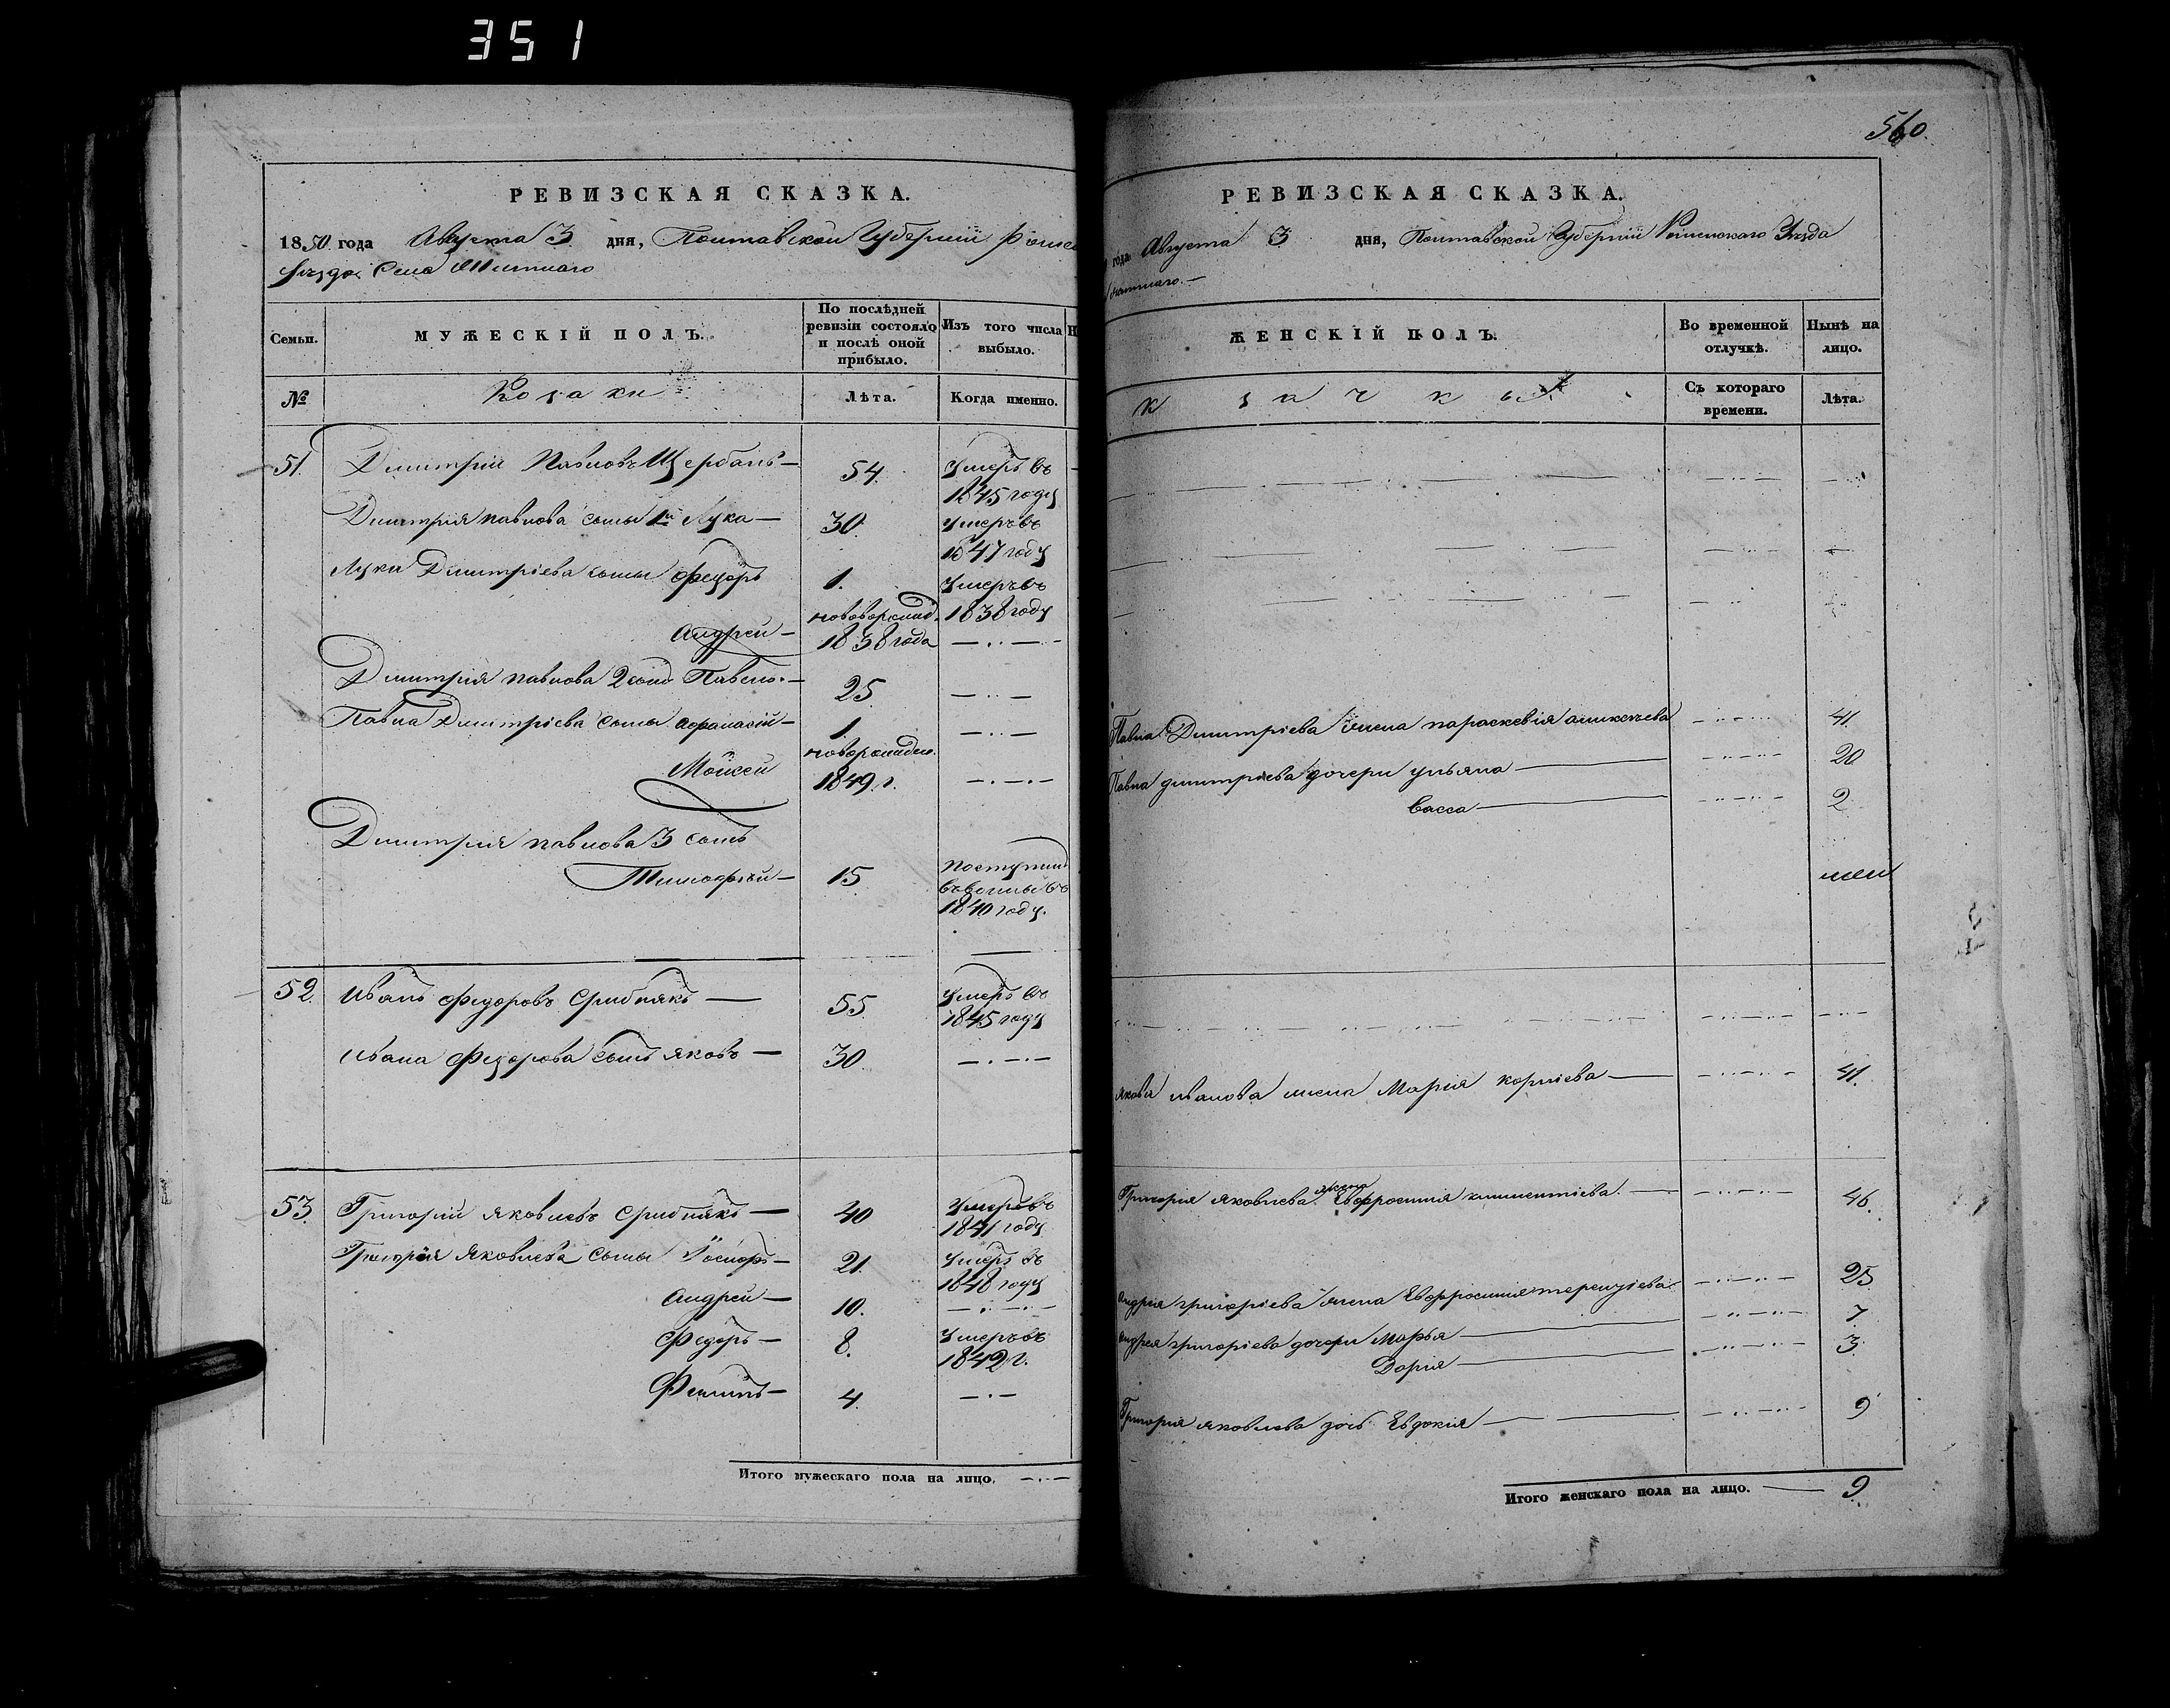 351
560.
РЕВИЗСКАЯ СКАЗКА.
1850 года Августа 3 дня, Полтавской Губернии
Уезда Села
Семьи.
МУЖЕСКІЙ ПОЛЪ.
По послѣдней ревизіи состояло и послѣ оной прибыло.
Изъ того числа выбыло.
№
Козаки
Лѣта.
Когда именно.
51. Димитрій Павловъ Щербань — 54. Умеръ въ
1845 году
Димитрія павлова сыны 1й Лука — 30. умеръ въ
1847 году
Луки Димитріева сыны Федоръ 1. Умеръ въ
1838 году
новорожд.
Андрей — 1838 года
Димитрія павлова 2 сынъ Павелъ — 25
Павла Димитріева сыны Афанасій — 1.
новорожден.
Мойсей 1849 г.
Димитрія павлова 3 сынъ
Тимофей — 15 поступил
въ
1840 году.
52. Иванъ Федоровъ Срибнякъ — 55 Умеръ въ
1845 году
Ивана Федорова сынъ яковъ — 30
53. Григорій яковлевъ Срибнякъ — 40 Умеръ въ
1841 году
Григорія Яковлева сыны Іосифъ — 21. Умеръ въ
1848 году
Андрей — 10.
Федоръ — 8. Умеръ въ
1842 г.
Филипъ — 4.
Итого мужескаго пола на лицо.
РЕВИЗСКАЯ СКАЗКА.
года Августа 3 дня, Полтавской Губерніи Роменскаго Уезда
ЖЕНСКІЙ ПОЛЪ.
Во временной отлучкѣ.
Нынѣ на лицо.
Съ котораго времени.
Лѣта.
Павла Димитріева жена параскевія 41.
Павла димитріева дочери ульяна 20
Васса 2
якова иванова жена Марія корніева 41.
Григорія яковлева жена Евфросинія климентіева. 46.
Андрея григоріева жена Евфросинія терентіева 25
Андрея григоріева дочери Марья 7
Дарія 3.
Григорія яковлева дочь Евдокія 9
Итого женскаго пола на лицо. 9.